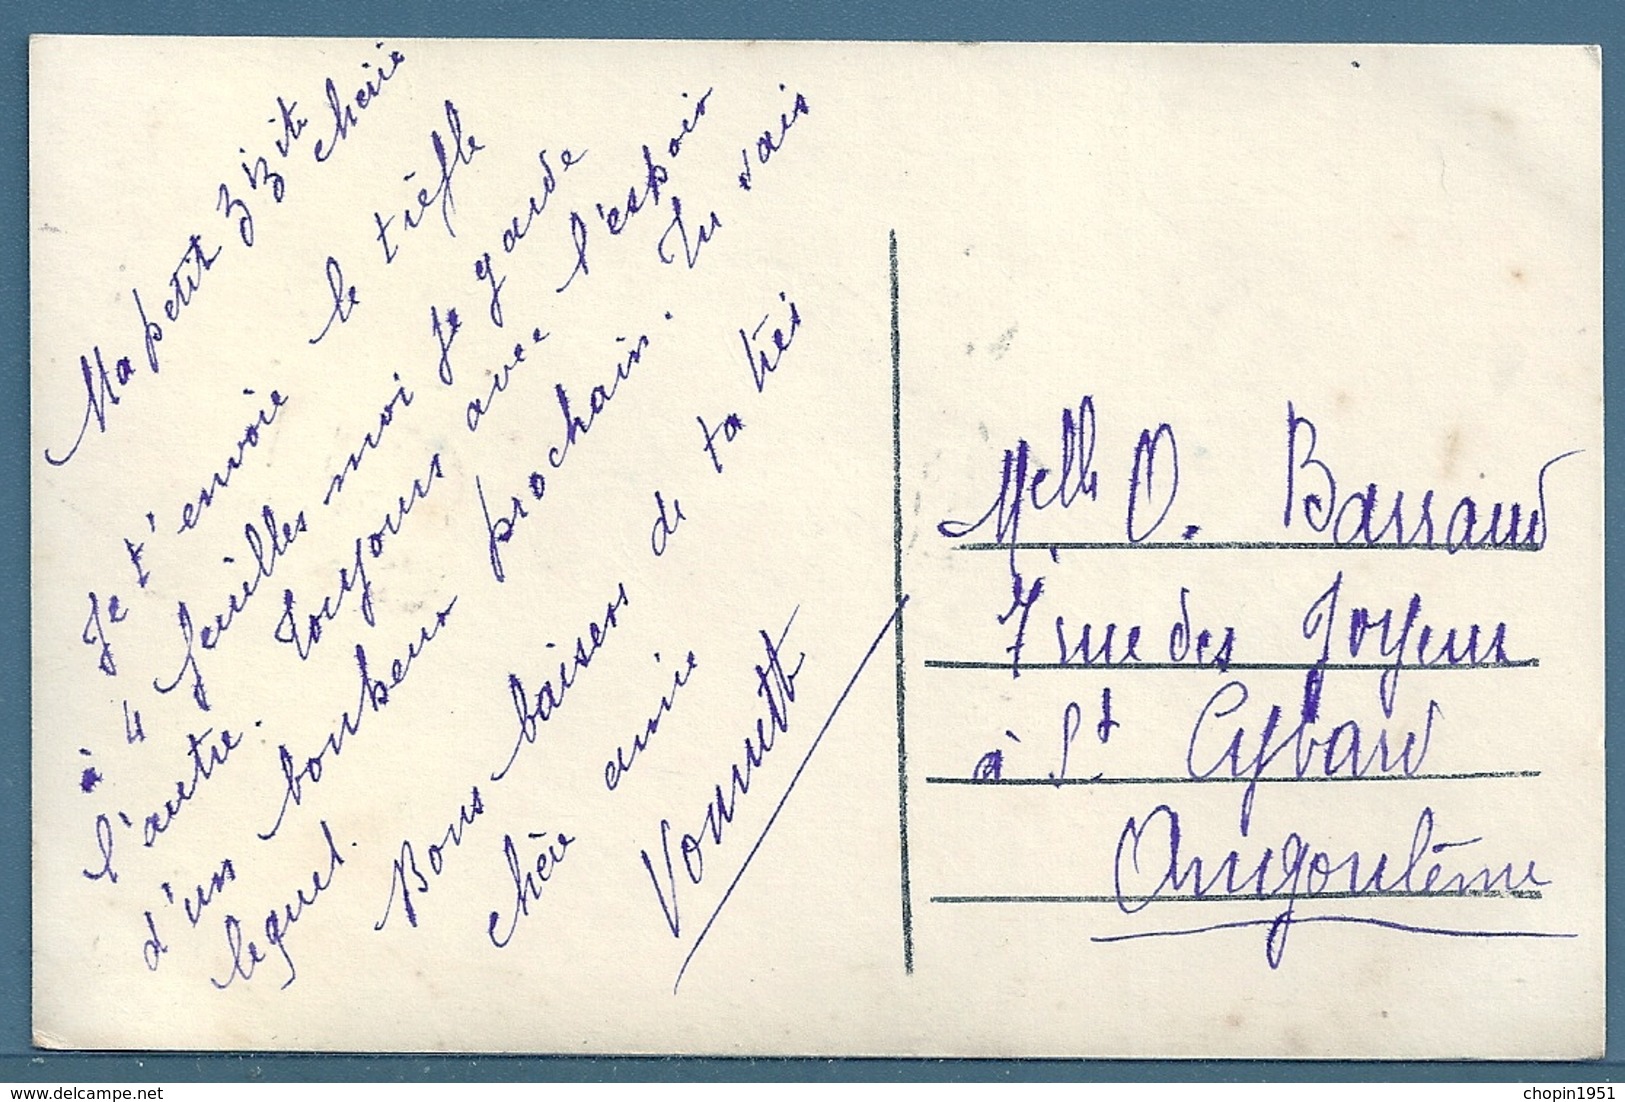 Ma petit zizite
cherie
Je t'envoie le trèfle
à 4 feuilles moi je garde
l'autre. Toujours avec l'espoir
d'un bonheur prochain. Tu sais
lequel.
Bons baisers de ta très
chère amie
Vonnette
Melle O. Barraud
7 rue des Joyeux
à St Cybard
Angoulême
chopin1951